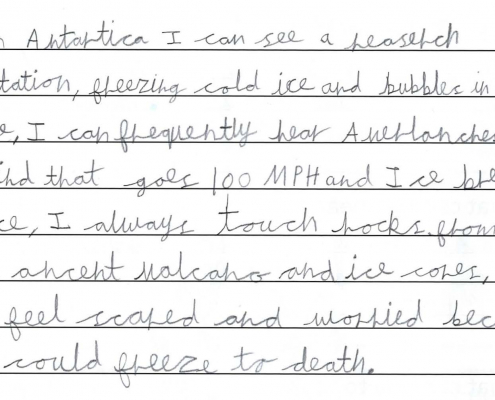 n Antartica I can see a reaserch
tation, freezing cold ice and bubbles in
e, I can frequently hear Averlanches
ind that goes 100 MPH and I ce bre
ce, I always touch rocks from
ancent valcano and ice cores,
feel scared and worried bec
could freeze to death.